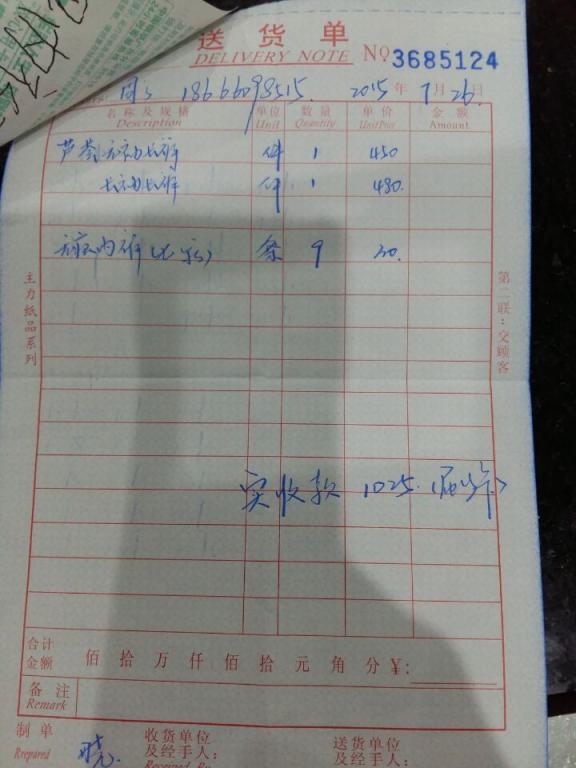 送货单
DELIVERY NOTE No 3685124
18666098515 2015年7月26日
名称及规格 单位 数量 单价 金额
Description Unit Quantity UnitPrice Amount
芦荟 长裤 件 1 450
长裤 件 1 480
内裤 条 9 30
主力纸品系列
第二联:交顾客
实收款 1025.
合计
金额 佰拾万仟佰拾元角分¥:
备注
Remark
制单 收货单位 送货单位
及经手人: 及经手人:
Rrepared 晓 Received By